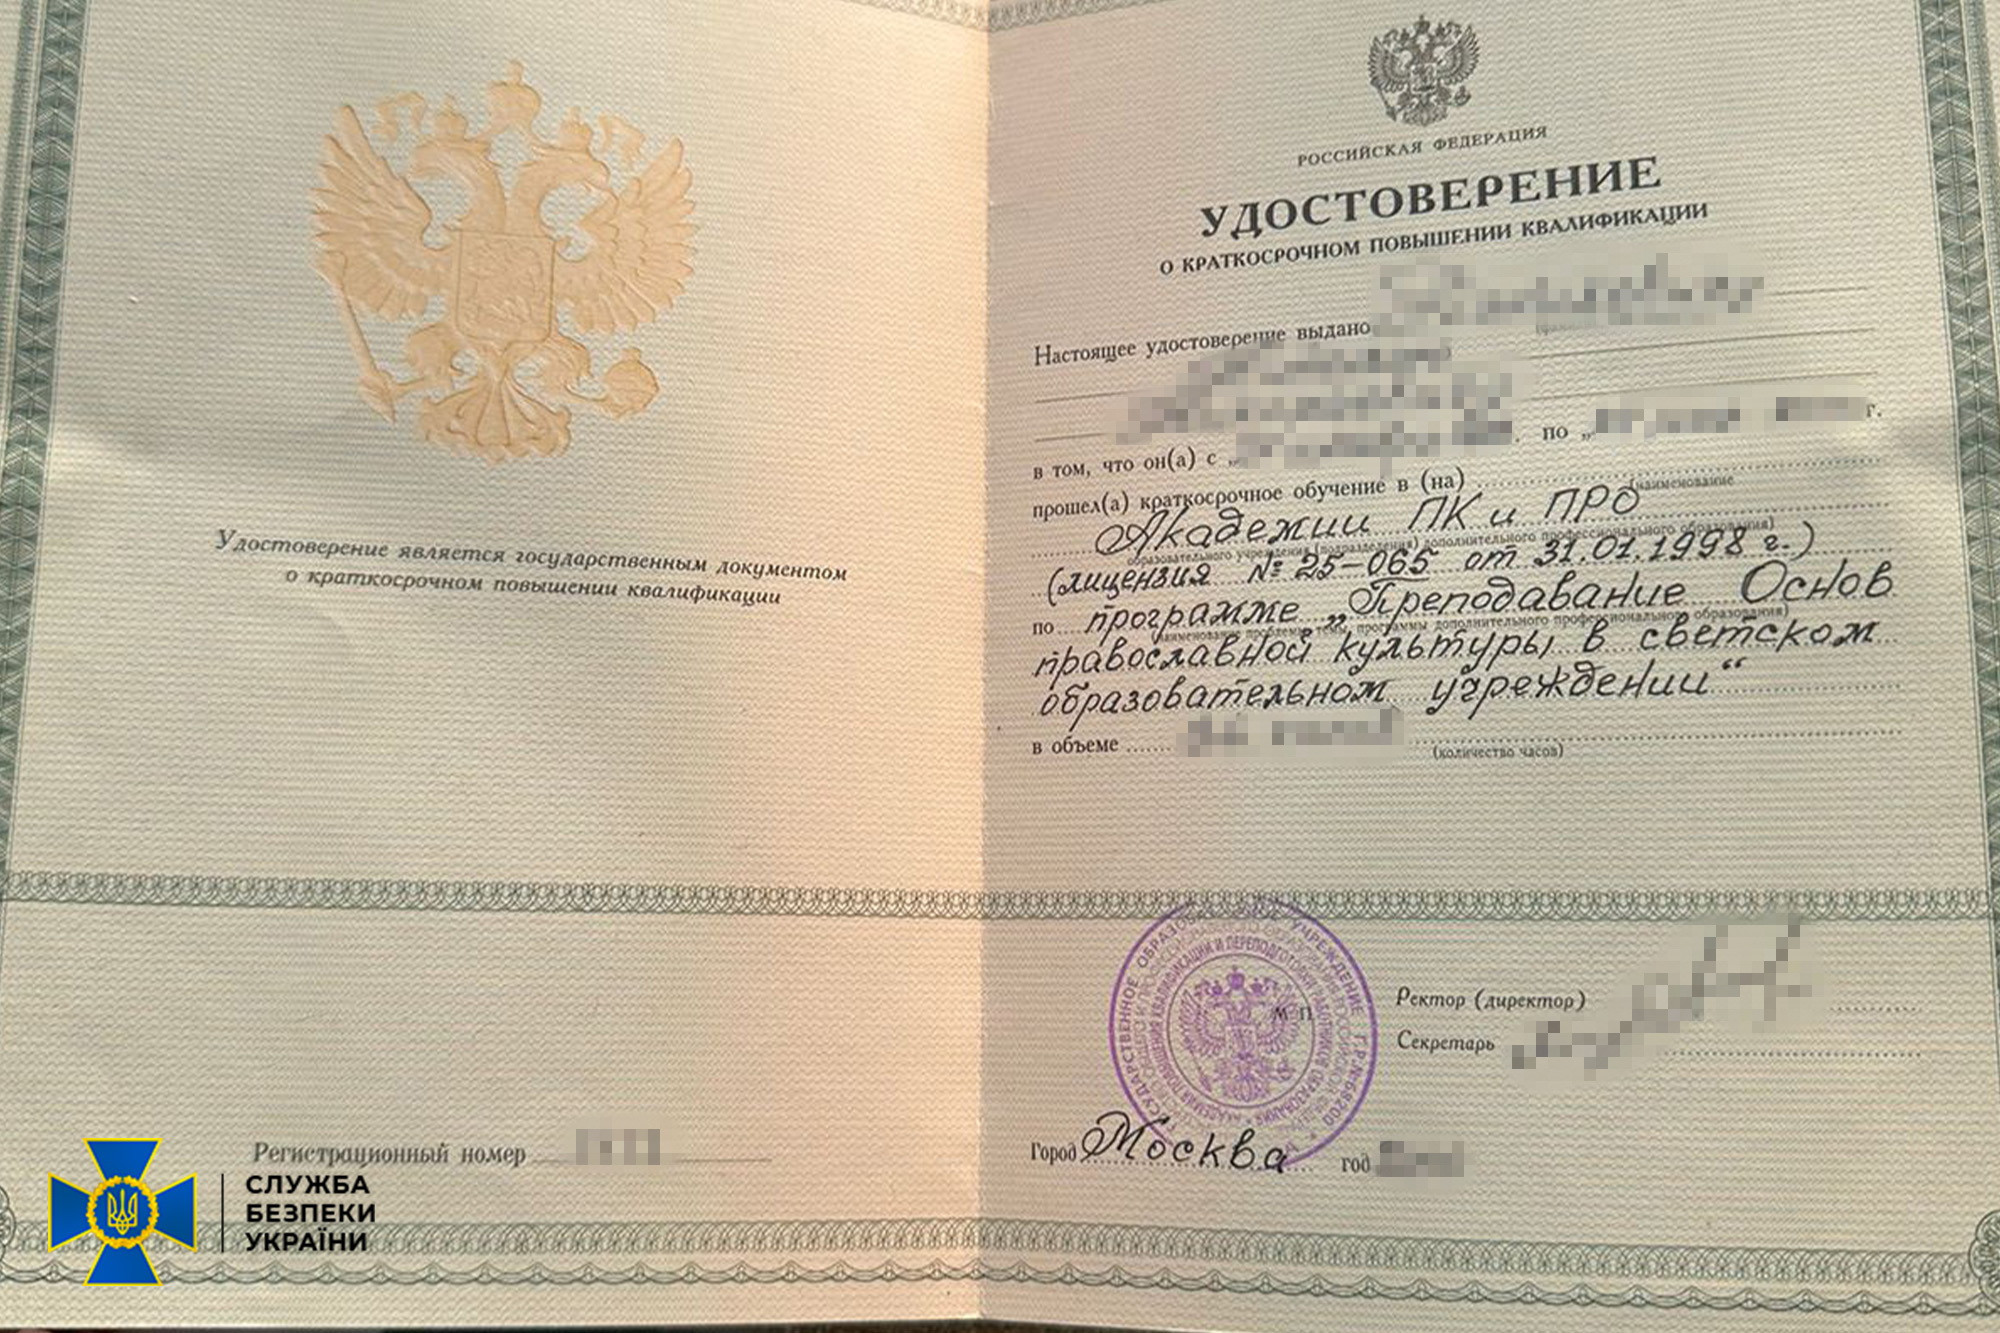 Удостоверение является государственным документом
о краткосрочном повышении квалификации
Регистрационный номер
СЛУЖБА
БЕЗПЕКИ
УКРАЇНИ
РОССИЙСКАЯ ФЕДЕРАЦИЯ
УДОСТОВЕРЕНИЕ
О КРАТКОСРОЧНОМ ПОВЫШЕНИИ КВАЛИФИКАЦИИ
Настоящее удостоверение выдано
в том, что он(а) с „ по „ г.
прошел(а) краткосрочное обучение в (на)
(наименование
Академии ПК и ПРО
образовательного учреждения (подразделения) дополнительного профессионального образования)
(лицензия № 25-065 от 31.01.1998 г.)
по программе „Преподавание Основ
(наименование проблемы, темы, программы дополнительного профессионального образования)
православной культуры в светском
образовательном учреждении“
в объеме
(количество часов)
ГОСУДАРСТВЕННОЕ ОБРАЗОВАТЕЛЬНОЕ УЧРЕЖДЕНИЕ
АКАДЕМИЯ ПОВЫШЕНИЯ КВАЛИФИКАЦИИ И ПЕРЕПОДГОТОВКИ РАБОТНИКОВ ОБРАЗОВАНИЯ
М П
Ректор (директор)
Секретарь
Город Москва год